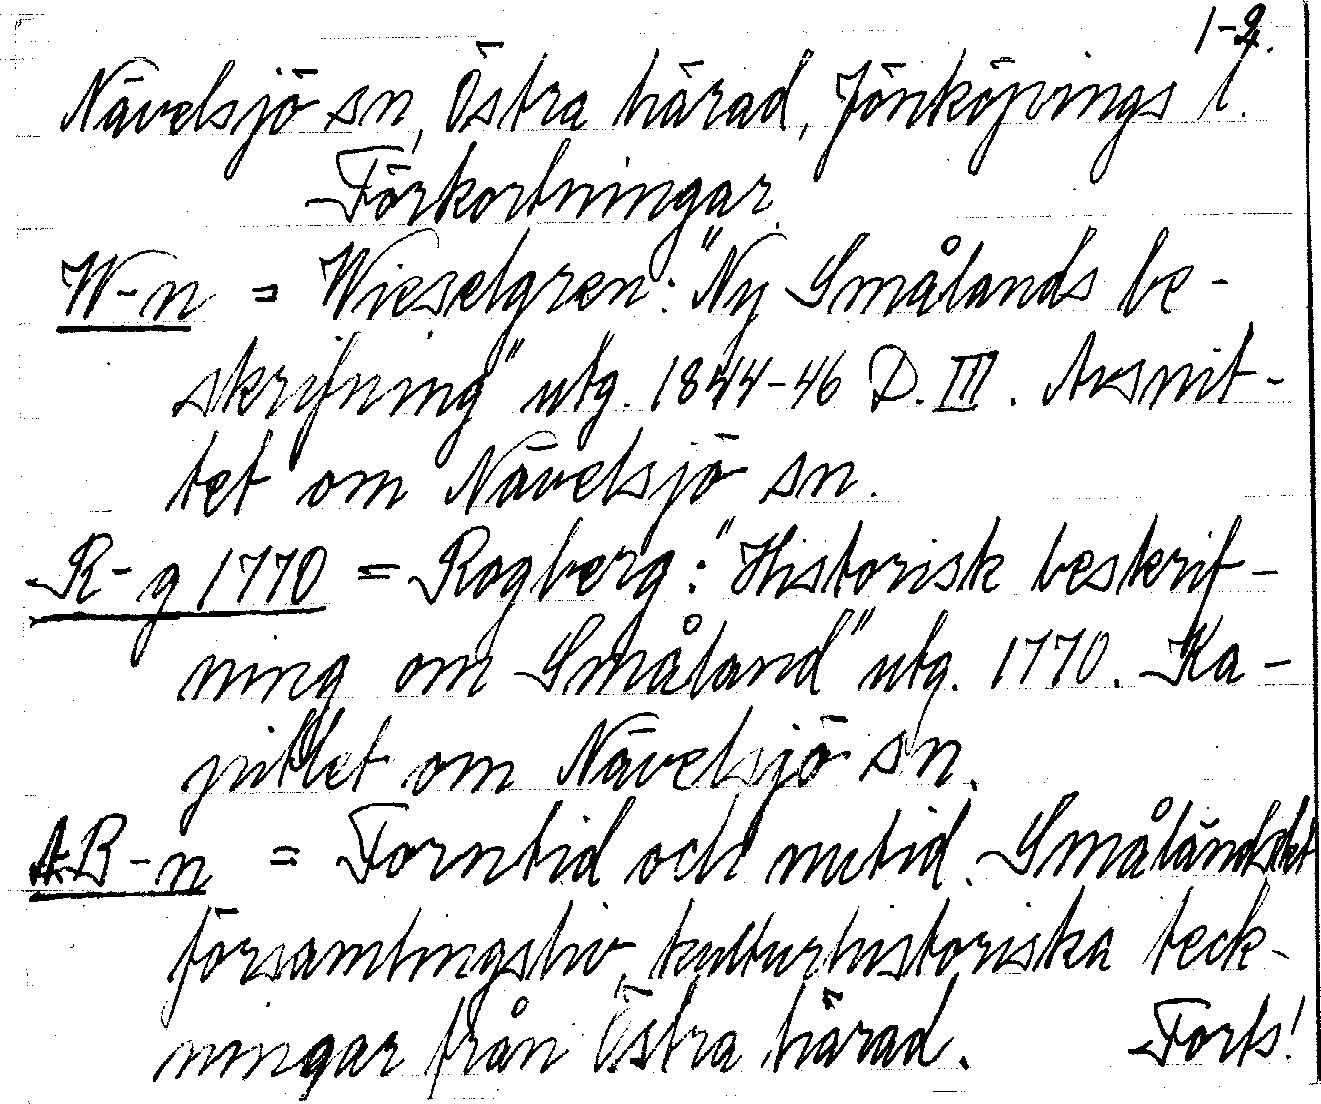 1-2.
Nävelsjö sn, Östra härad, Jönköpings l.
Förkortningar.
W-n = Wieselgren: "Ny Smålands be-
skrifning" utg. 1844-46 D. III. Avsnit-
tet om Nävelsjö sn.
R-g 1770 = Rogberg: "Historisk beskrif-
ning om Småland" utg. 1770. Ka-
pitlet om Nävelsjö sn.
AB-n = Forntid och nutid. Småländskt
församlingsliv, kulturhistoriska teck-
ningar från Östra härad. Forts!